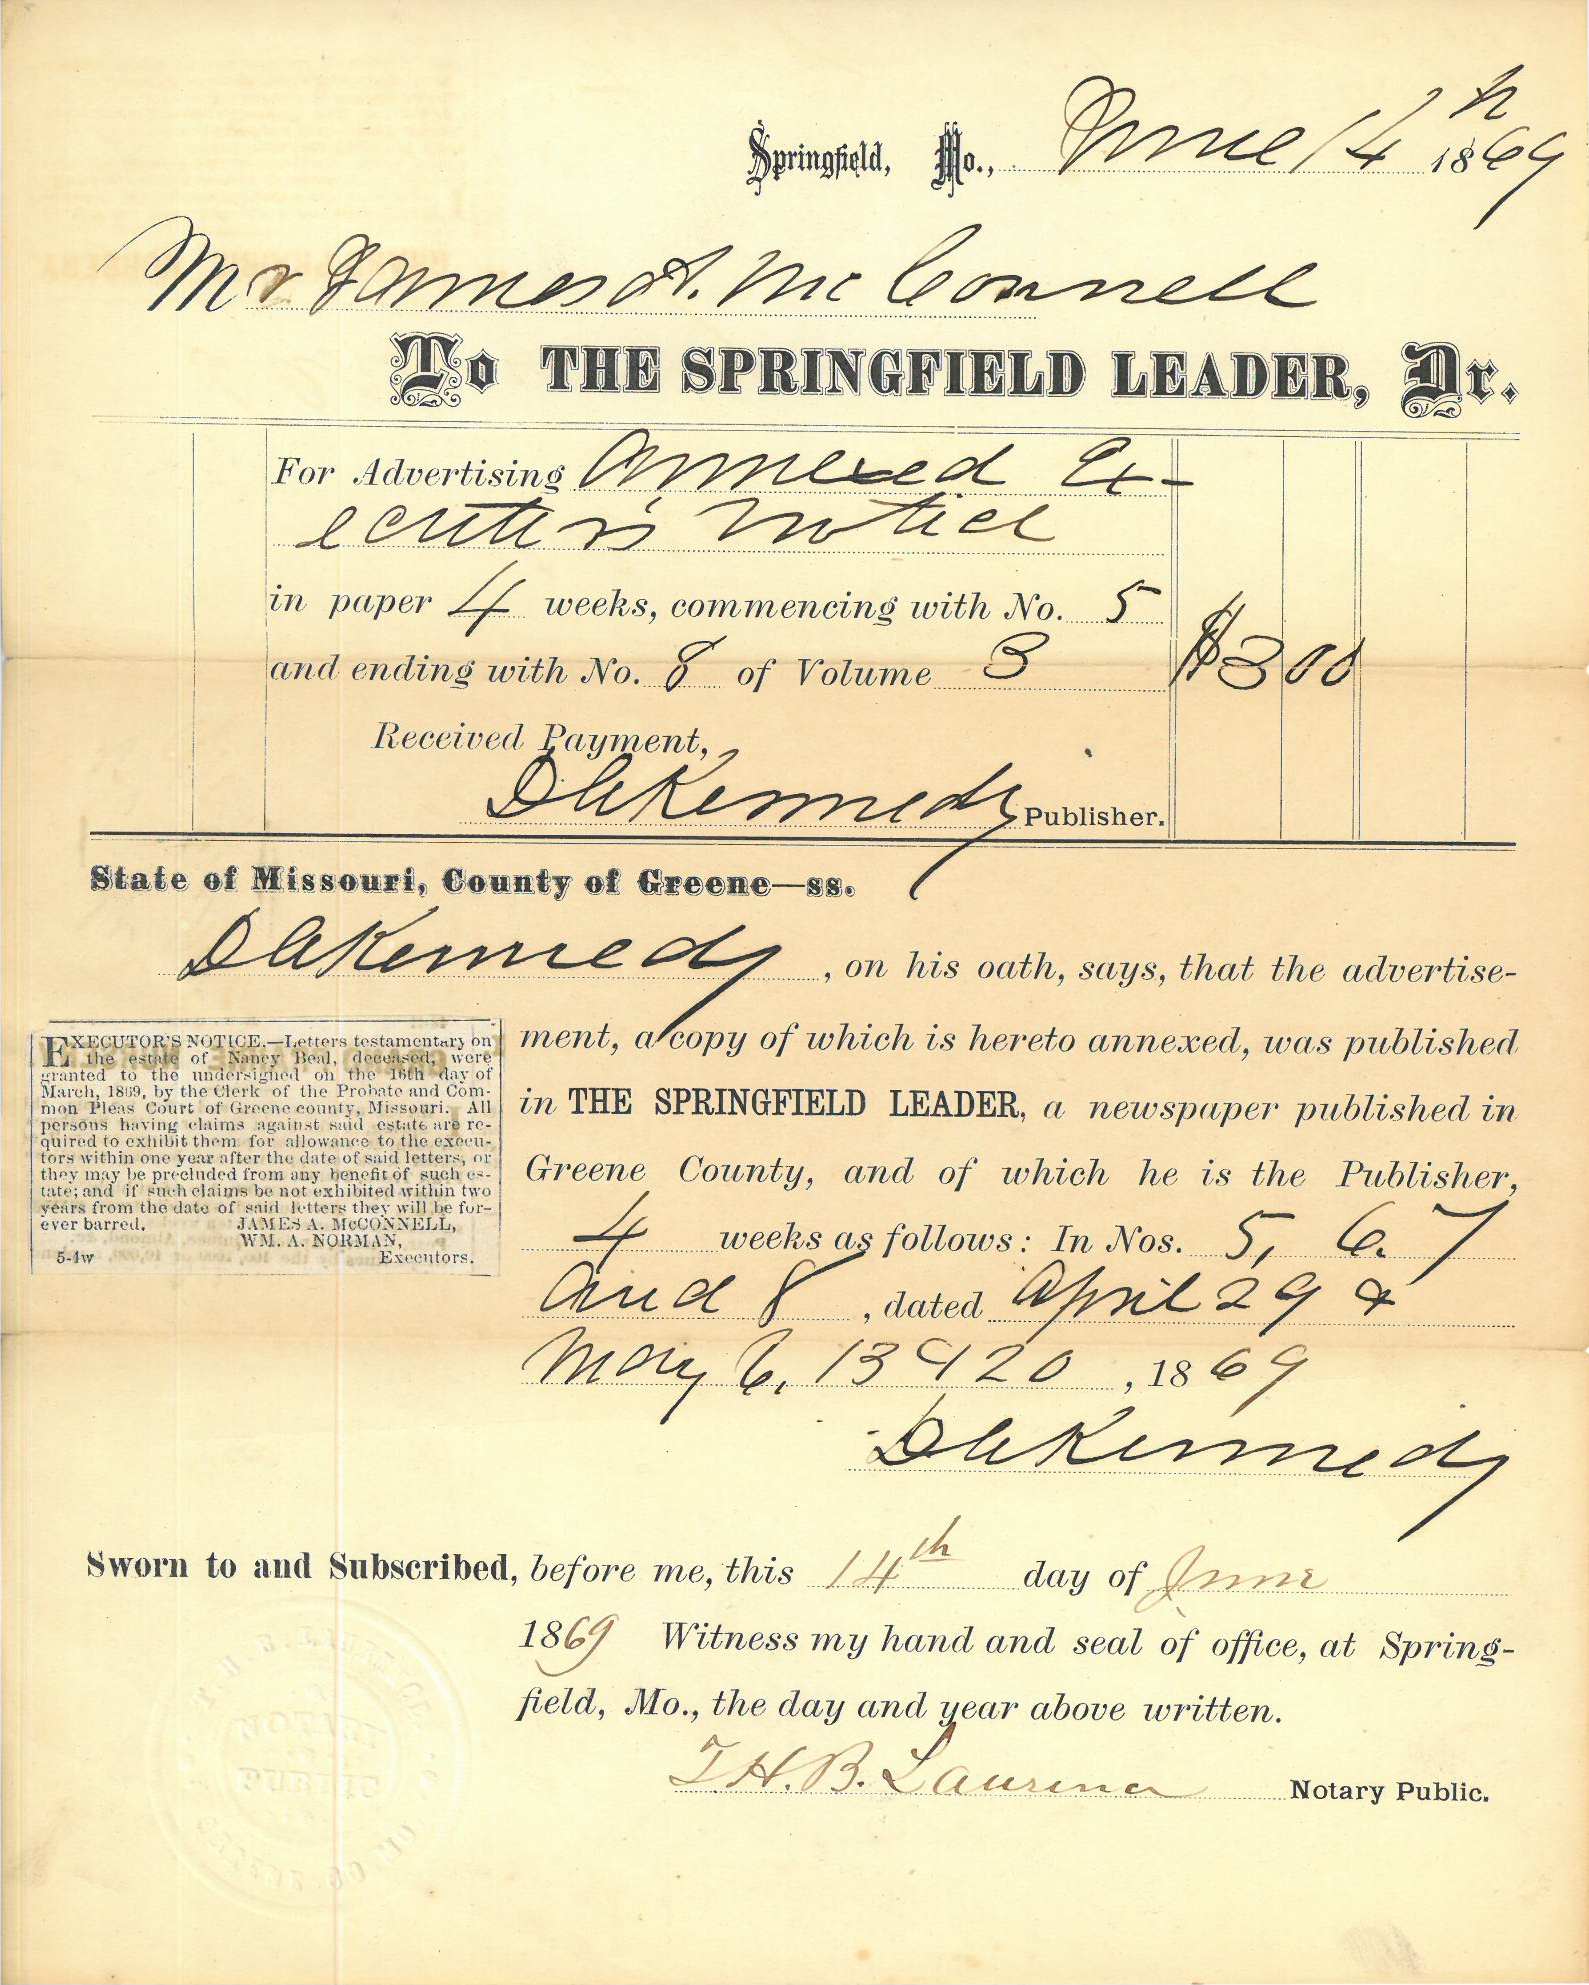 Springfield, Mo., June 14th 1869
Mr James A. McConnell
To THE SPRINGFIELD LEADER, Dr.
For Advertising Annexed Ex-
ecutor's Notice
in paper 4 weeks, commencing with No. 5
and ending with No. 8 of Volume 3 $3 00
Received Payment,
D C Kennedy Publisher.
State of Missouri, County of Greene—ss.
D C Kennedy, on his oath, says, that the advertise-
ment, a copy of which is hereto annexed, was published
in THE SPRINGFIELD LEADER, a newspaper published in
Greene County, and of which he is the Publisher,
4 weeks as follows: In Nos. 5, 6. 7
and 8, dated April 29 &
May 6, 13 & 20, 1869
D C Kennedy
EXECUTOR'S NOTICE.—Letters testamentary on
the estate of Nancy Beal, deceased, were
granted to the undersigned on the 16th day of
March, 1869, by the Clerk of the Probate and Com-
mon Pleas Court of Greene county, Missouri. All
persons having claims against said estate are re-
quired to exhibit them for allowance to the execu-
tors within one year after the date of said letters, or
they may be precluded from any benefit of such es-
tate; and if such claims be not exhibited within two
years from the date of said letters they will be for-
ever barred. JAMES A. McCONNELL,
WM. A. NORMAN,
5-4w Executors.
Sworn to and Subscribed, before me, this 14th day of June
1869 Witness my hand and seal of office, at Spring-
field, Mo., the day and year above written.
T. H. B. Notary Public.
NOTARY
PUBLIC